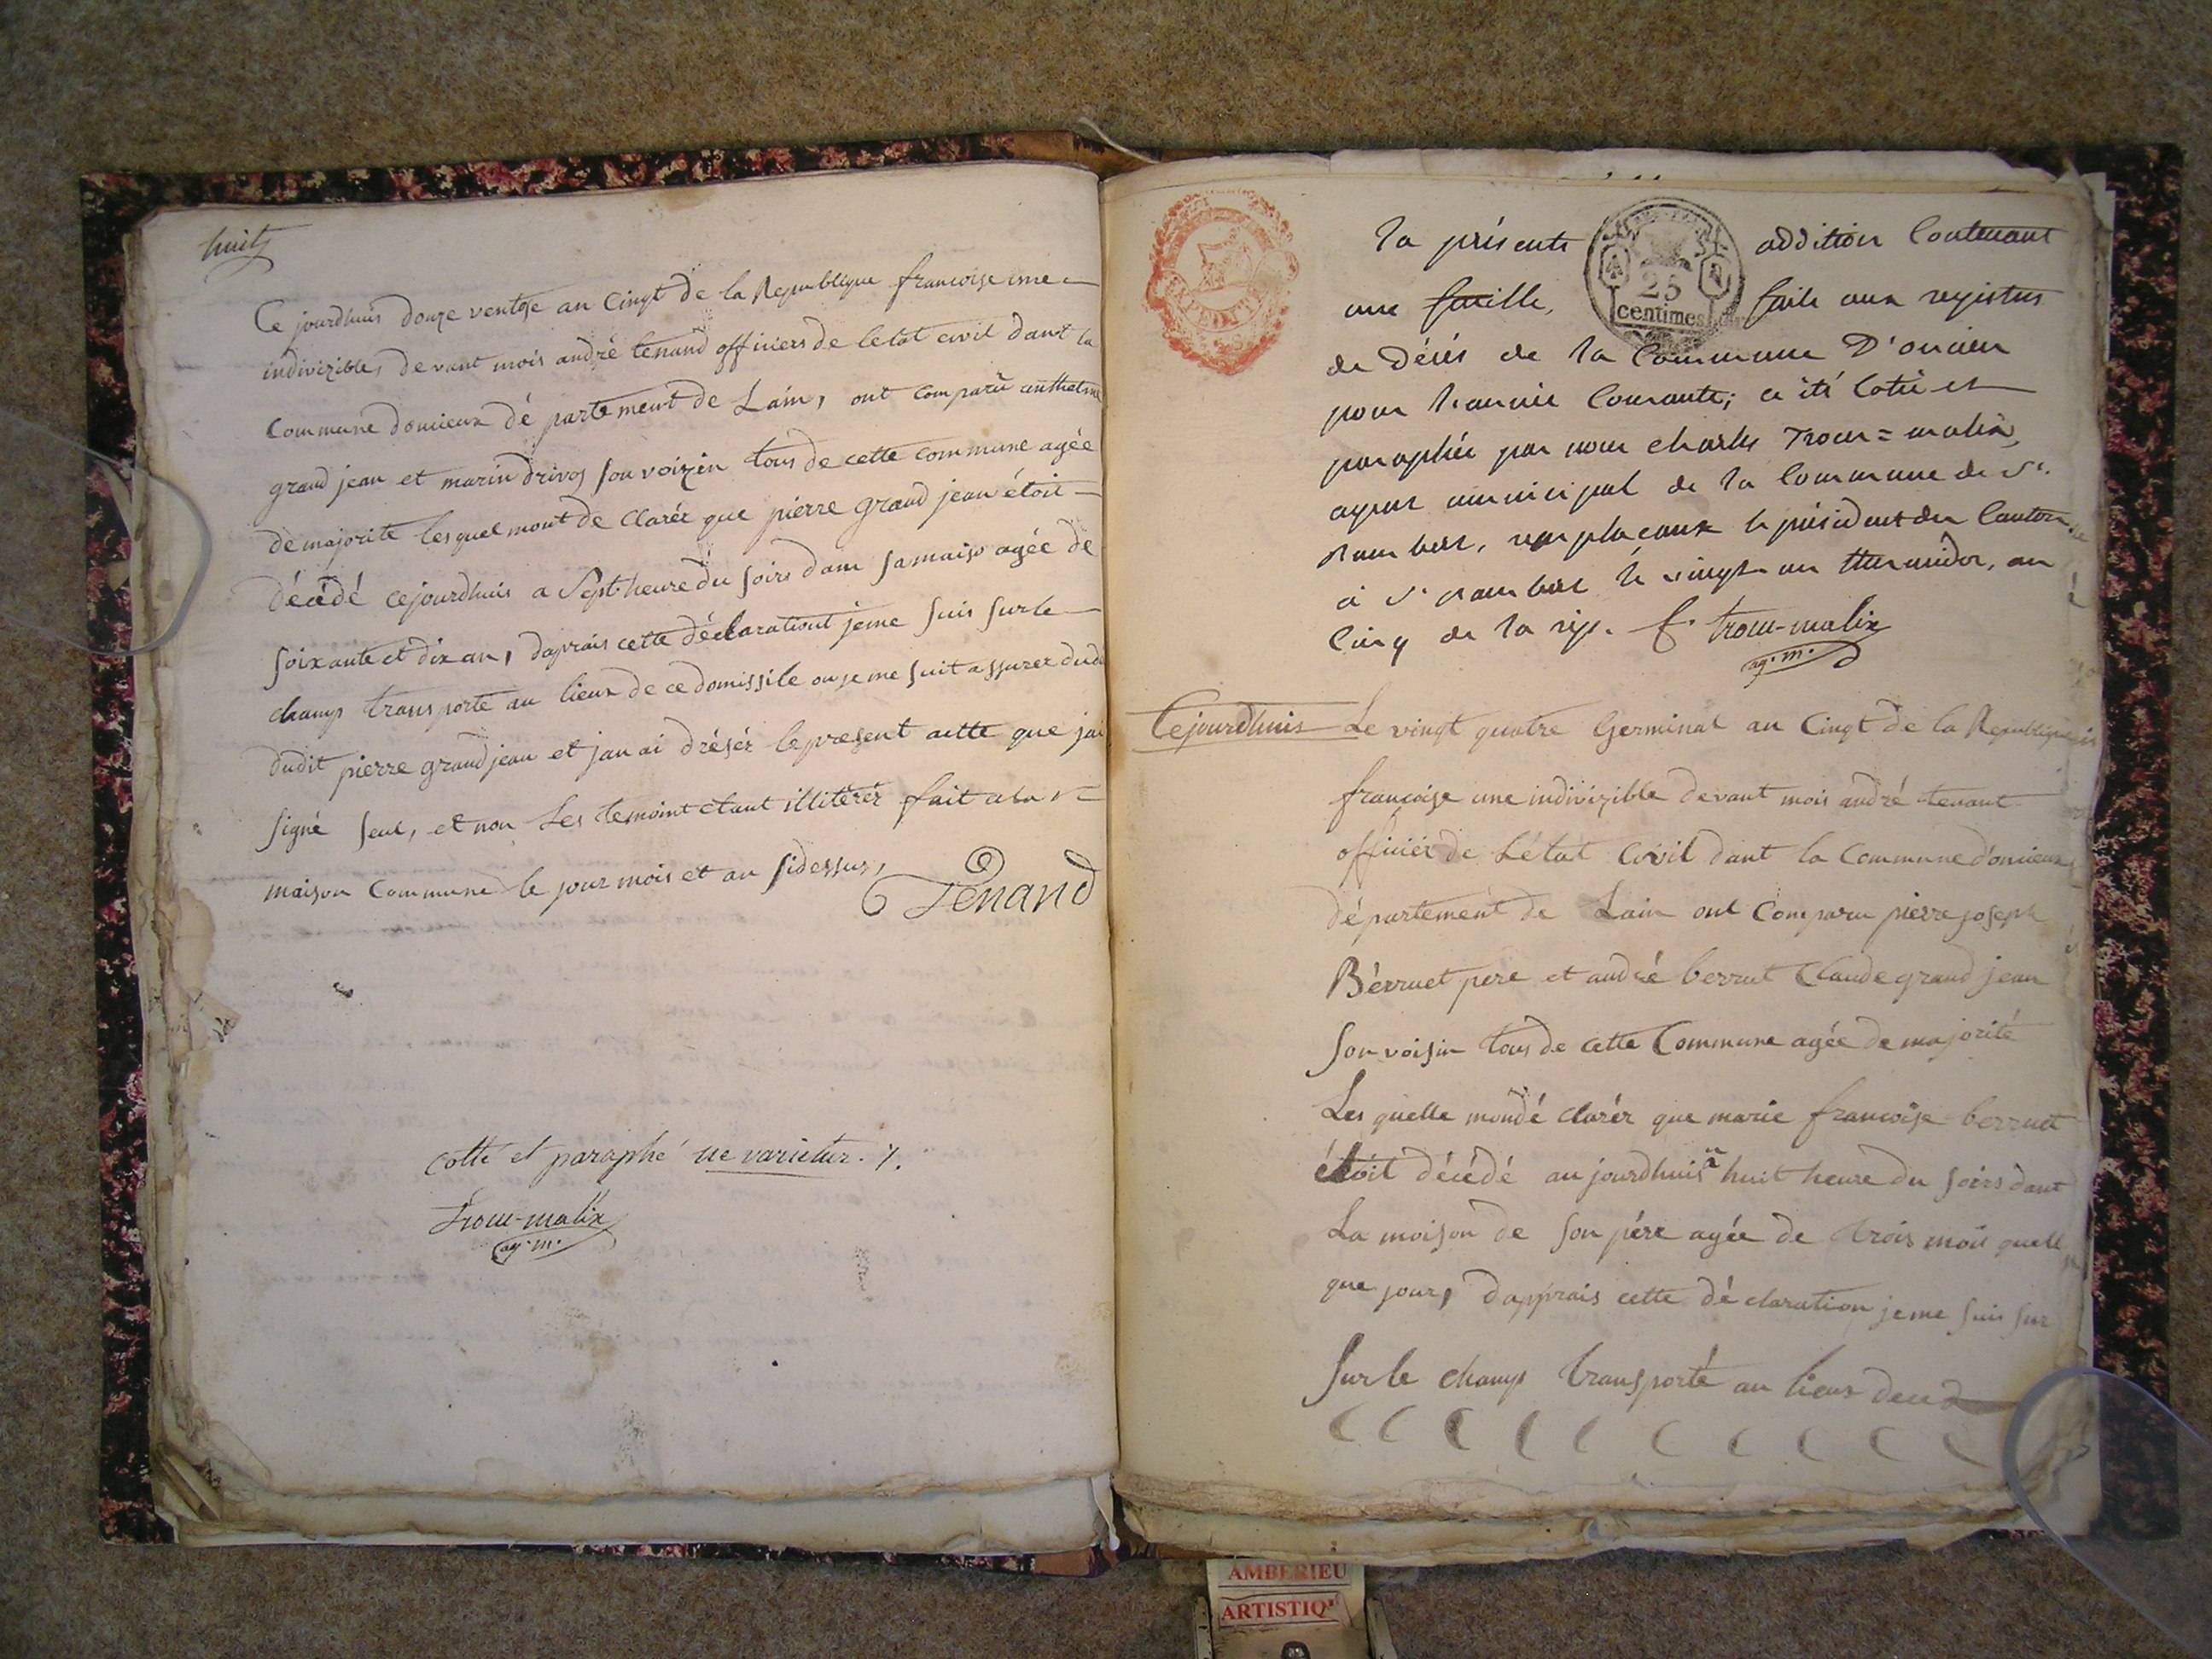 huit
Ce jourdhuis douze ventose an Cinqt de la Republique francoise une
indivizible, devant mois andré tenand officiers de letat civil dant la
Commune doncieux dé partement de Lain, ont comparû anthelme
grand jean et marin drivoz son voizin tous de cette commune agée
de majorite lesquel mont de clarér que pierre grand jean étoit
décédé cejourdhuis a Sept heure du soirs dans samaiso agée de
soixante et dix an, daprais cette déclarationt jeme suis surle
champ transporté au lieux de ce domissile ou je me suit assurer dudé
dudit pierre grand jean et jan ai drésér lepresent actte que jai
signé seul, et non Les temoint etant illitérér fait a la
maison Commune le jour mois et an sidessus,
Tenand
cotté et paraphé ne varietur. /.
Trocu-malix
ag. m.
la présente addition Contenant
une feuille, faite aux registres
25
centimes
de Décés de la Commune D'oncieu
pour l'année Courante; a été Cotée et
paraphée par nous charles Trocu=malix,
agent municipal de la Commune de St.
rambert, remplacant le président du Canton,
à St. rambert le vingt un thermidor, an
Cinq de la rép. C. trocu-malix
ag. m.
Cejourdhuis Le vingt quatre Germinal an Cinqt de la Republique
francoise une indivizible devant mois andré tenant
officiér de Létat Civil dant la Commune d'oncieux
département de Lain ont Comparu pierre joseph
Bérruet pere et andré berrut Claude grand jean
son voisin tous de cette Commune agée de majorité
Les quelle mondé clarér que marie francoise berruet
étoit décédé au jourdhuis a huit heure du soirs dant
La moison de son pére agée de trois mois quell
que jour, dapprais cette déclaration jeme suis sur
sur le champ transporté au lieux dece d
AMBERIEU
ARTISTIQ'